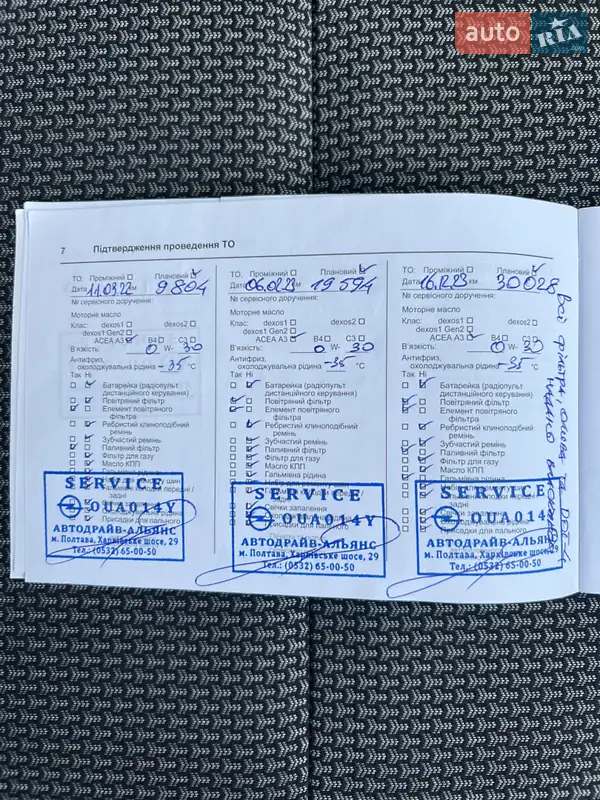 auto RIA
7 Підтвердження проведення ТО
ТО: Проміжний Плановий
Дата 11.03.22 км 9804
№ сервісного доручення:
Моторне масло
Клас: dexos1 dexos2
dexos1 Gen2
ACEA A3 B4 C3
В'язкість: 0 W- 30
Антифриз,
охолоджувальна рідина -35 °C
Так Ні
Батарейка (радіопульт
дистанційного керування)
Повітряний фільтр
Елемент повітряного
фільтра
Ребристий клиноподібний
ремінь
Зубчастий ремінь
Паливний фільтр
Фільтр для газу
Масло КПП
Гальмівна рідина
SERVICE
OUA014Y
АВТОДРАЙВ-АЛЬЯНС
м. Полтава, Харківське шосе, 29
Тел.: (0532) 65-00-50
ТО: Проміжний Плановий
Дата 06.02.23 км 19 594
№ сервісного доручення:
Моторне масло
Клас: dexos1 dexos2
dexos1 Gen2
ACEA A3 B4 C3
В'язкість: 0 W- 30
Антифриз,
охолоджувальна рідина -35 °C
Так Ні
Батарейка (радіопульт
дистанційного керування)
Повітряний фільтр
Елемент повітряного
фільтра
Ребристий клиноподібний
ремінь
Зубчастий ремінь
Паливний фільтр
Фільтр для газу
Масло КПП
Гальмівна рідина
SERVICE
OUA014Y
АВТОДРАЙВ-АЛЬЯНС
м. Полтава, Харківське шосе, 29
Тел.: (0532) 65-00-50
ТО: Проміжний Плановий
Дата 16.12.23 км 30028
№ сервісного доручення:
Моторне масло
Клас: dexos1 dexos2
dexos1 Gen2
ACEA A3 B4 C3
В'язкість: 0 W- 30
Антифриз,
охолоджувальна рідина -35 °C
Так Ні
Батарейка (радіопульт
дистанційного керування)
Повітряний фільтр
Елемент повітряного
фільтра
Ребристий клиноподібний
ремінь
Зубчастий ремінь
Паливний фільтр
Фільтр для газу
Масло КПП
Гальмівна рідина
SERVICE
OUA014
АВТОДРАЙВ-АЛЬЯНС
м. Полтава, Харківське шосе, 29
Тел.: (0532) 65-00-50
Всі фільтра, та DOT-4